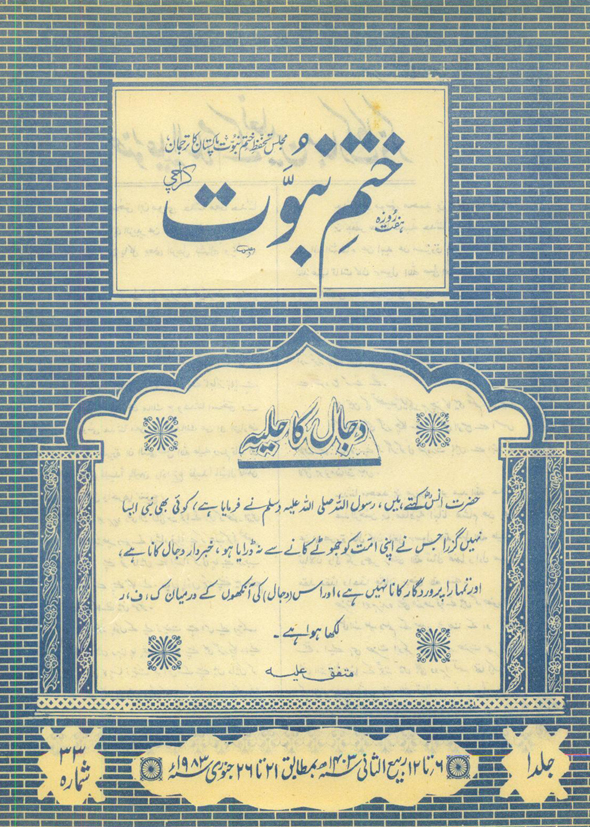 مجلس تحفظ ختم نبوت پاکستان کا ترجمان
ہفت روزہ
ختمِ نبوَّت
کراچی
دجال کا حلیہ
حضرت انسؓ کہتے ہیں، رسول اللہ صلی اللہ علیہ وسلم نے فرمایا ہے، کوئی بھی نبی ایسا
نہیں گزرا جس نے اپنی امت کو جھوٹے کانے سے نہ ڈرایا ہو، خبردار دجال کانا ہے،
اور تمہارا پروردگار کانا نہیں ہے، اور اس (دجال) کی آنکھوں کے درمیان ک، ف، ر
لکھا ہوا ہے۔
متفق علیہ
جلد ۱
۶ تا ۱۲ ربیع الثانی ۱۴۰۳ھ بمطابق ۲۱ تا ۲۶ جنوری ۱۹۸۳ء
شمارہ ۳۳